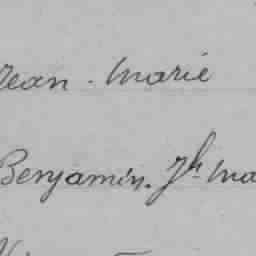 Jean - Marie
Benjamin. Jh Ma